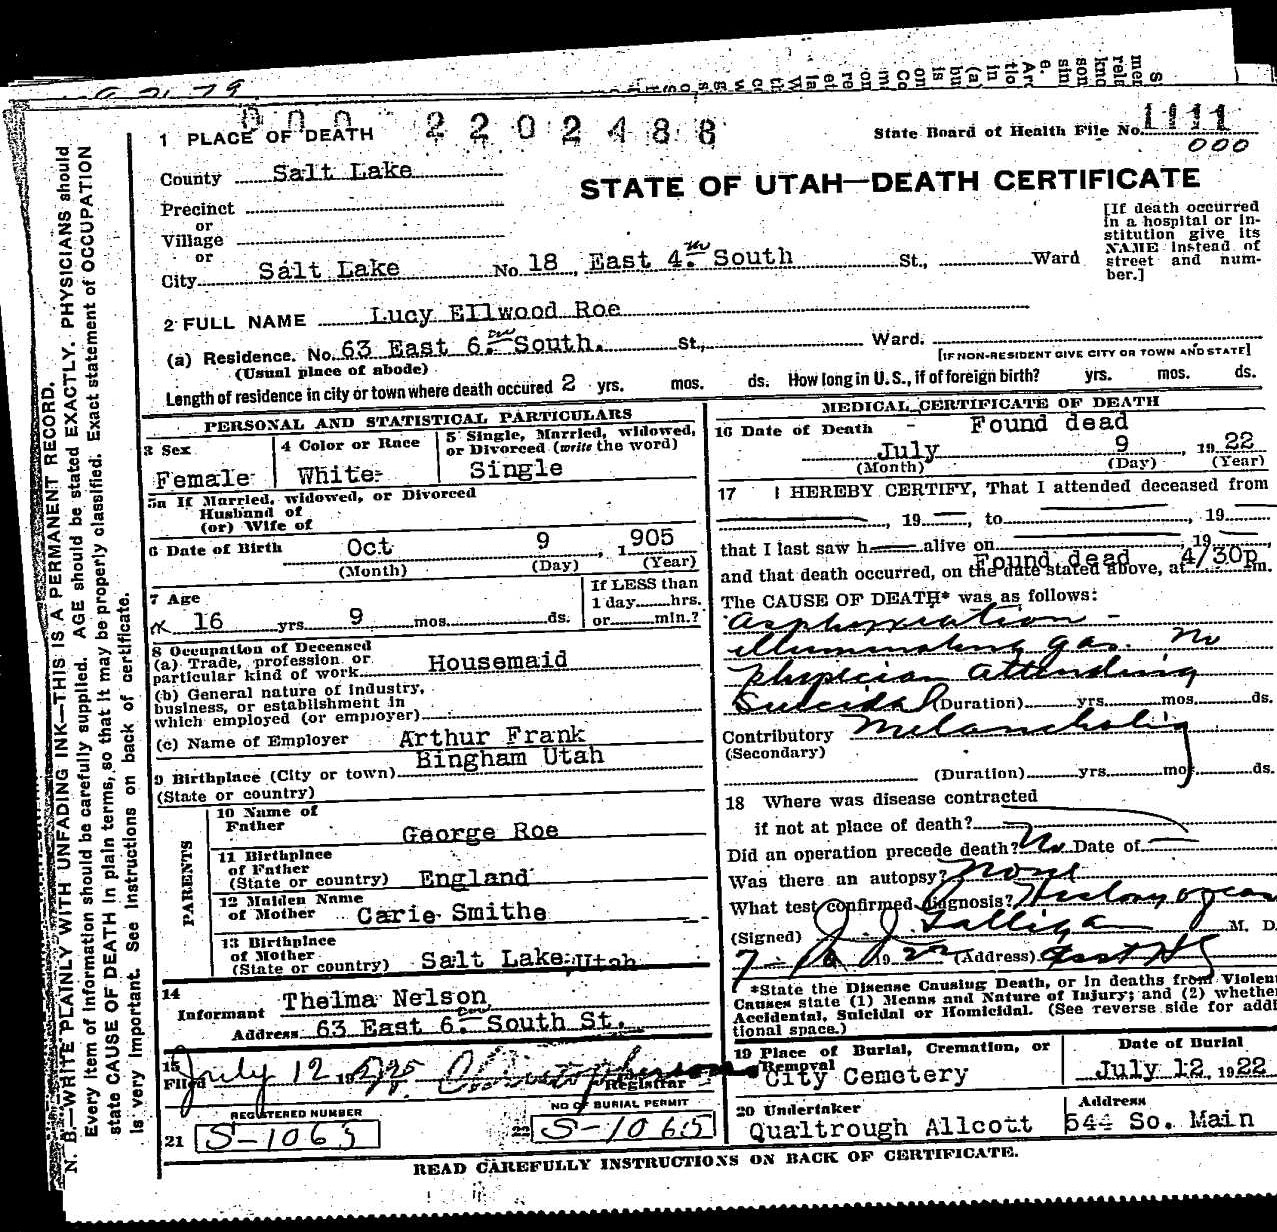 000 2202488
1 PLACE OF DEATH
State Board of Health File No. 1111
000
County Salt Lake
STATE OF UTAH—DEATH CERTIFICATE
Precinct
or
Village
or
City Salt Lake No. 18 East 4th South St., Ward
[If death occurred
in a hospital or in-
stitution give its
NAME instead of
street and num-
ber.]
2 FULL NAME Lucy Ellwood Roe
(a) Residence. No. 63 East 6th South. St., Ward.
(Usual place of abode)
[IF NON-RESIDENT GIVE CITY OR TOWN AND STATE]
Length of residence in city or town where death occured 2 yrs. mos. ds. How long in U. S., if of foreign birth? yrs. mos. ds.
PERSONAL AND STATISTICAL PARTICULARS
3 Sex
Female
4 Color or Race
White
5 Single, Married, widowed,
or Divorced (write the word)
Single
5a If Married, widowed, or Divorced
Husband of
(or) Wife of
6 Date of Birth Oct 9, 1905
(Month) (Day) (Year)
7 Age
16 yrs. 9 mos. ds.
If LESS than
1 day hrs.
or min.?
8 Occupation of Deceased
(a) Trade, profession or
particular kind of work Housemaid
(b) General nature of industry,
business, or establishment in
which employed (or employer)
(c) Name of Employer Arthur Frank
9 Birthplace (City or town) Bingham Utah
(State or country)
PARENTS
10 Name of
Father George Roe
11 Birthplace
of Father
(State or country) England
12 Maiden Name
of Mother Carie Smithe
13 Birthplace
of Mother
(State or country) Salt Lake, Utah
14
Informant Thelma Nelson
Address 63 East 6th South St.
15
Filed July 12 1922 Christopherson
Registrar
REGISTERED NUMBER
21 S-1065
NO OF BURIAL PERMIT
22 S-1065
MEDICAL CERTIFICATE OF DEATH
16 Date of Death - Found dead
July 9, 1922
(Month) (Day) (Year)
17 I HEREBY CERTIFY, That I attended deceased from
, 19 , to , 19
that I last saw h alive on , 19 ,
Found dead 4/30p
and that death occurred, on the date stated above, at m.
The CAUSE OF DEATH* was as follows:
Asphyxiation -
illuminating gas. No
physician attending
Suicidal (Duration) yrs. mos. ds.
Contributory Melancholia
(Secondary)
(Duration) yrs. mos. ds.
18 Where was disease contracted
if not at place of death?
Did an operation precede death? No Date of
Was there an autopsy? None
What test confirmed diagnosis? History of case
(Signed) J J Galligan M. D.
7-10 1922 (Address)
*State the Disease Causing Death, or in deaths from Violent
Causes state (1) Means and Nature of Injury; and (2) whether
Accidental, Suicidal or Homicidal. (See reverse side for addi-
tional space.)
19 Place of Burial, Cremation, or
Removal
City Cemetery
Date of Burial
July 12, 1922
20 Undertaker
Qualtrough Allcott
Address
544 So. Main
READ CAREFULLY INSTRUCTIONS ON BACK OF CERTIFICATE.
N. B.—WRITE PLAINLY WITH UNFADING INK—THIS IS A PERMANENT RECORD.
Every item of information should be carefully supplied. AGE should be stated EXACTLY. PHYSICIANS should
state CAUSE OF DEATH in plain terms, so that it may be properly classified. Exact statement of OCCUPATION
is very important. See instructions on back of certificate.